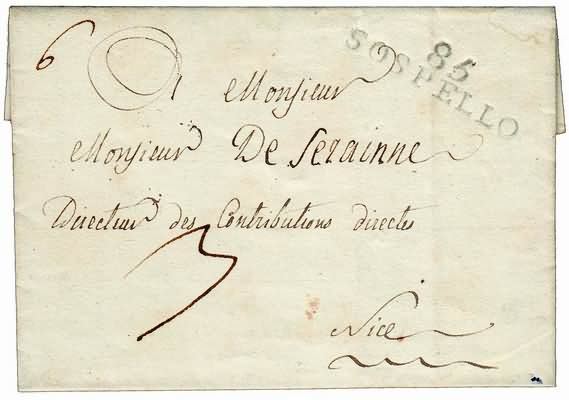 6
85
SOSPELLO
A Monsieur
Monsieur De Serainne
Directeur des Contributions directes
3
Nice